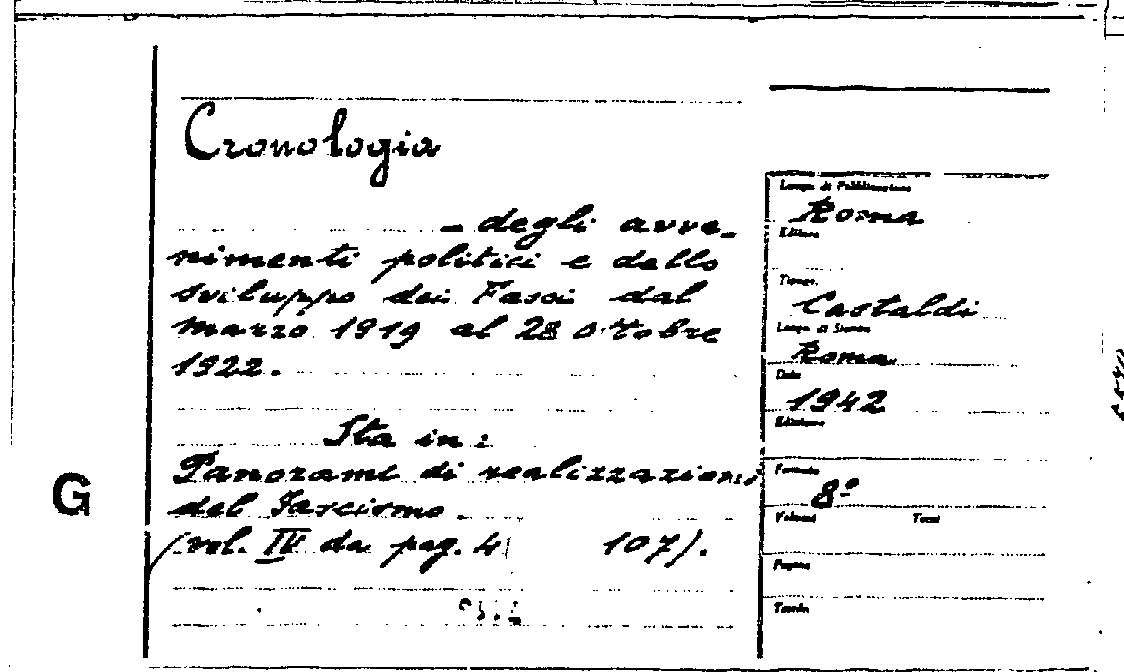 Cronologia
- degli avve-
nimenti politici e dello
sviluppo dei Fasci dal
marzo 1919 al 28 ottobre
1922.
Sta in:
Panorami di realizzazioni
del Fascismo.
(vol. IV da pag. 4 107).
G
Luogo di Pubblicazione
Roma
Editore
Tipogr.
Castaldi
Luogo di Stampa
Roma
Data
1942
Edizione
Formato
8º
Volumi Tomi
Pagine
Tavole